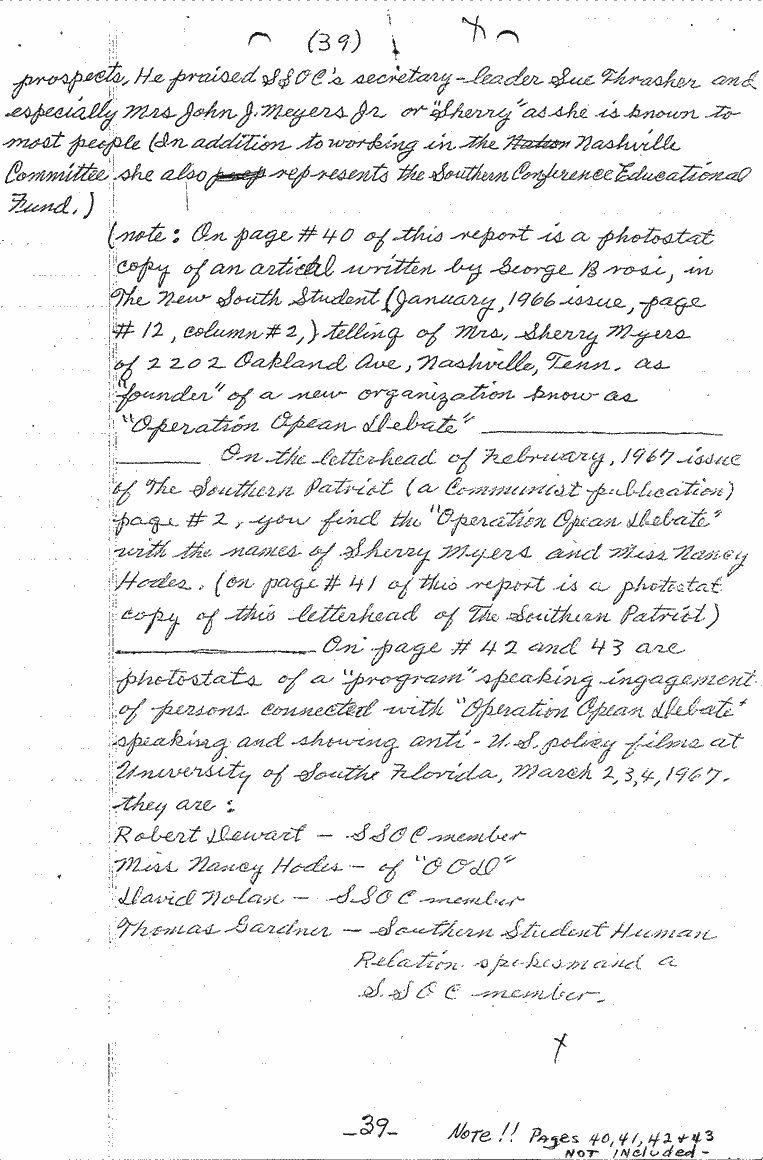 (39)
prospects. He praised SSOC's secretary-leader Sue Thrasher and
especially Mrs John J. Meyers Jr or "Sherry" as she is known to
most people (In addition to working in the Nation Nashville
Committee she also represents the Southern Conference Educational
Fund.)
(note: On page #40 of this report is a photostat
copy of an articel written by George Brosi, in
The New South Student (January, 1966 issue, page
#12, column #2,) telling of Mrs. Sherry Myers
of 2202 Oakland Ave, Nashville, Tenn. as
"founder" of a new organization know as
"Operation Opean Debate"
On the letterhead of February, 1967 issue
of The Southern Patriot (a Communist publication)
page #2, you find the "Operation Opean Debate"
with the names of Sherry Myers and Miss Nancy
Hodes. (on page #41 of this report is a photostat
copy of this letterhead of The Southern Patriot)
On page #42 and 43 are
photostats of a "program" speaking ingagement
of persons connected with "Operation Opean Debate"
speaking and showing anti-U.S. policy films at
University of Southe Florida, March 2,3,4, 1967.
they are:
Robert Dewart - SSOC member
Miss Nancy Hodes - of "OOD"
David Nolan - SSOC member
Thomas Gardner - Southern Student Human
Relation spokesmand a
S.SOC member.
-39-
Note!! Pages 40,41,42+43
NOT INCluded-